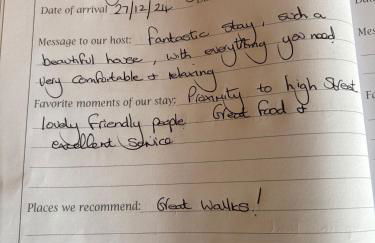 Date of arrival 27/12/24
Message to our host: Fantastic stay, such a
beautiful house, with everything you need
very comfortable & relaxing
Favorite moments of our stay: Proximity to high Street
lovely friendly people Great food &
excellent service
Places we recommend: Great walks!